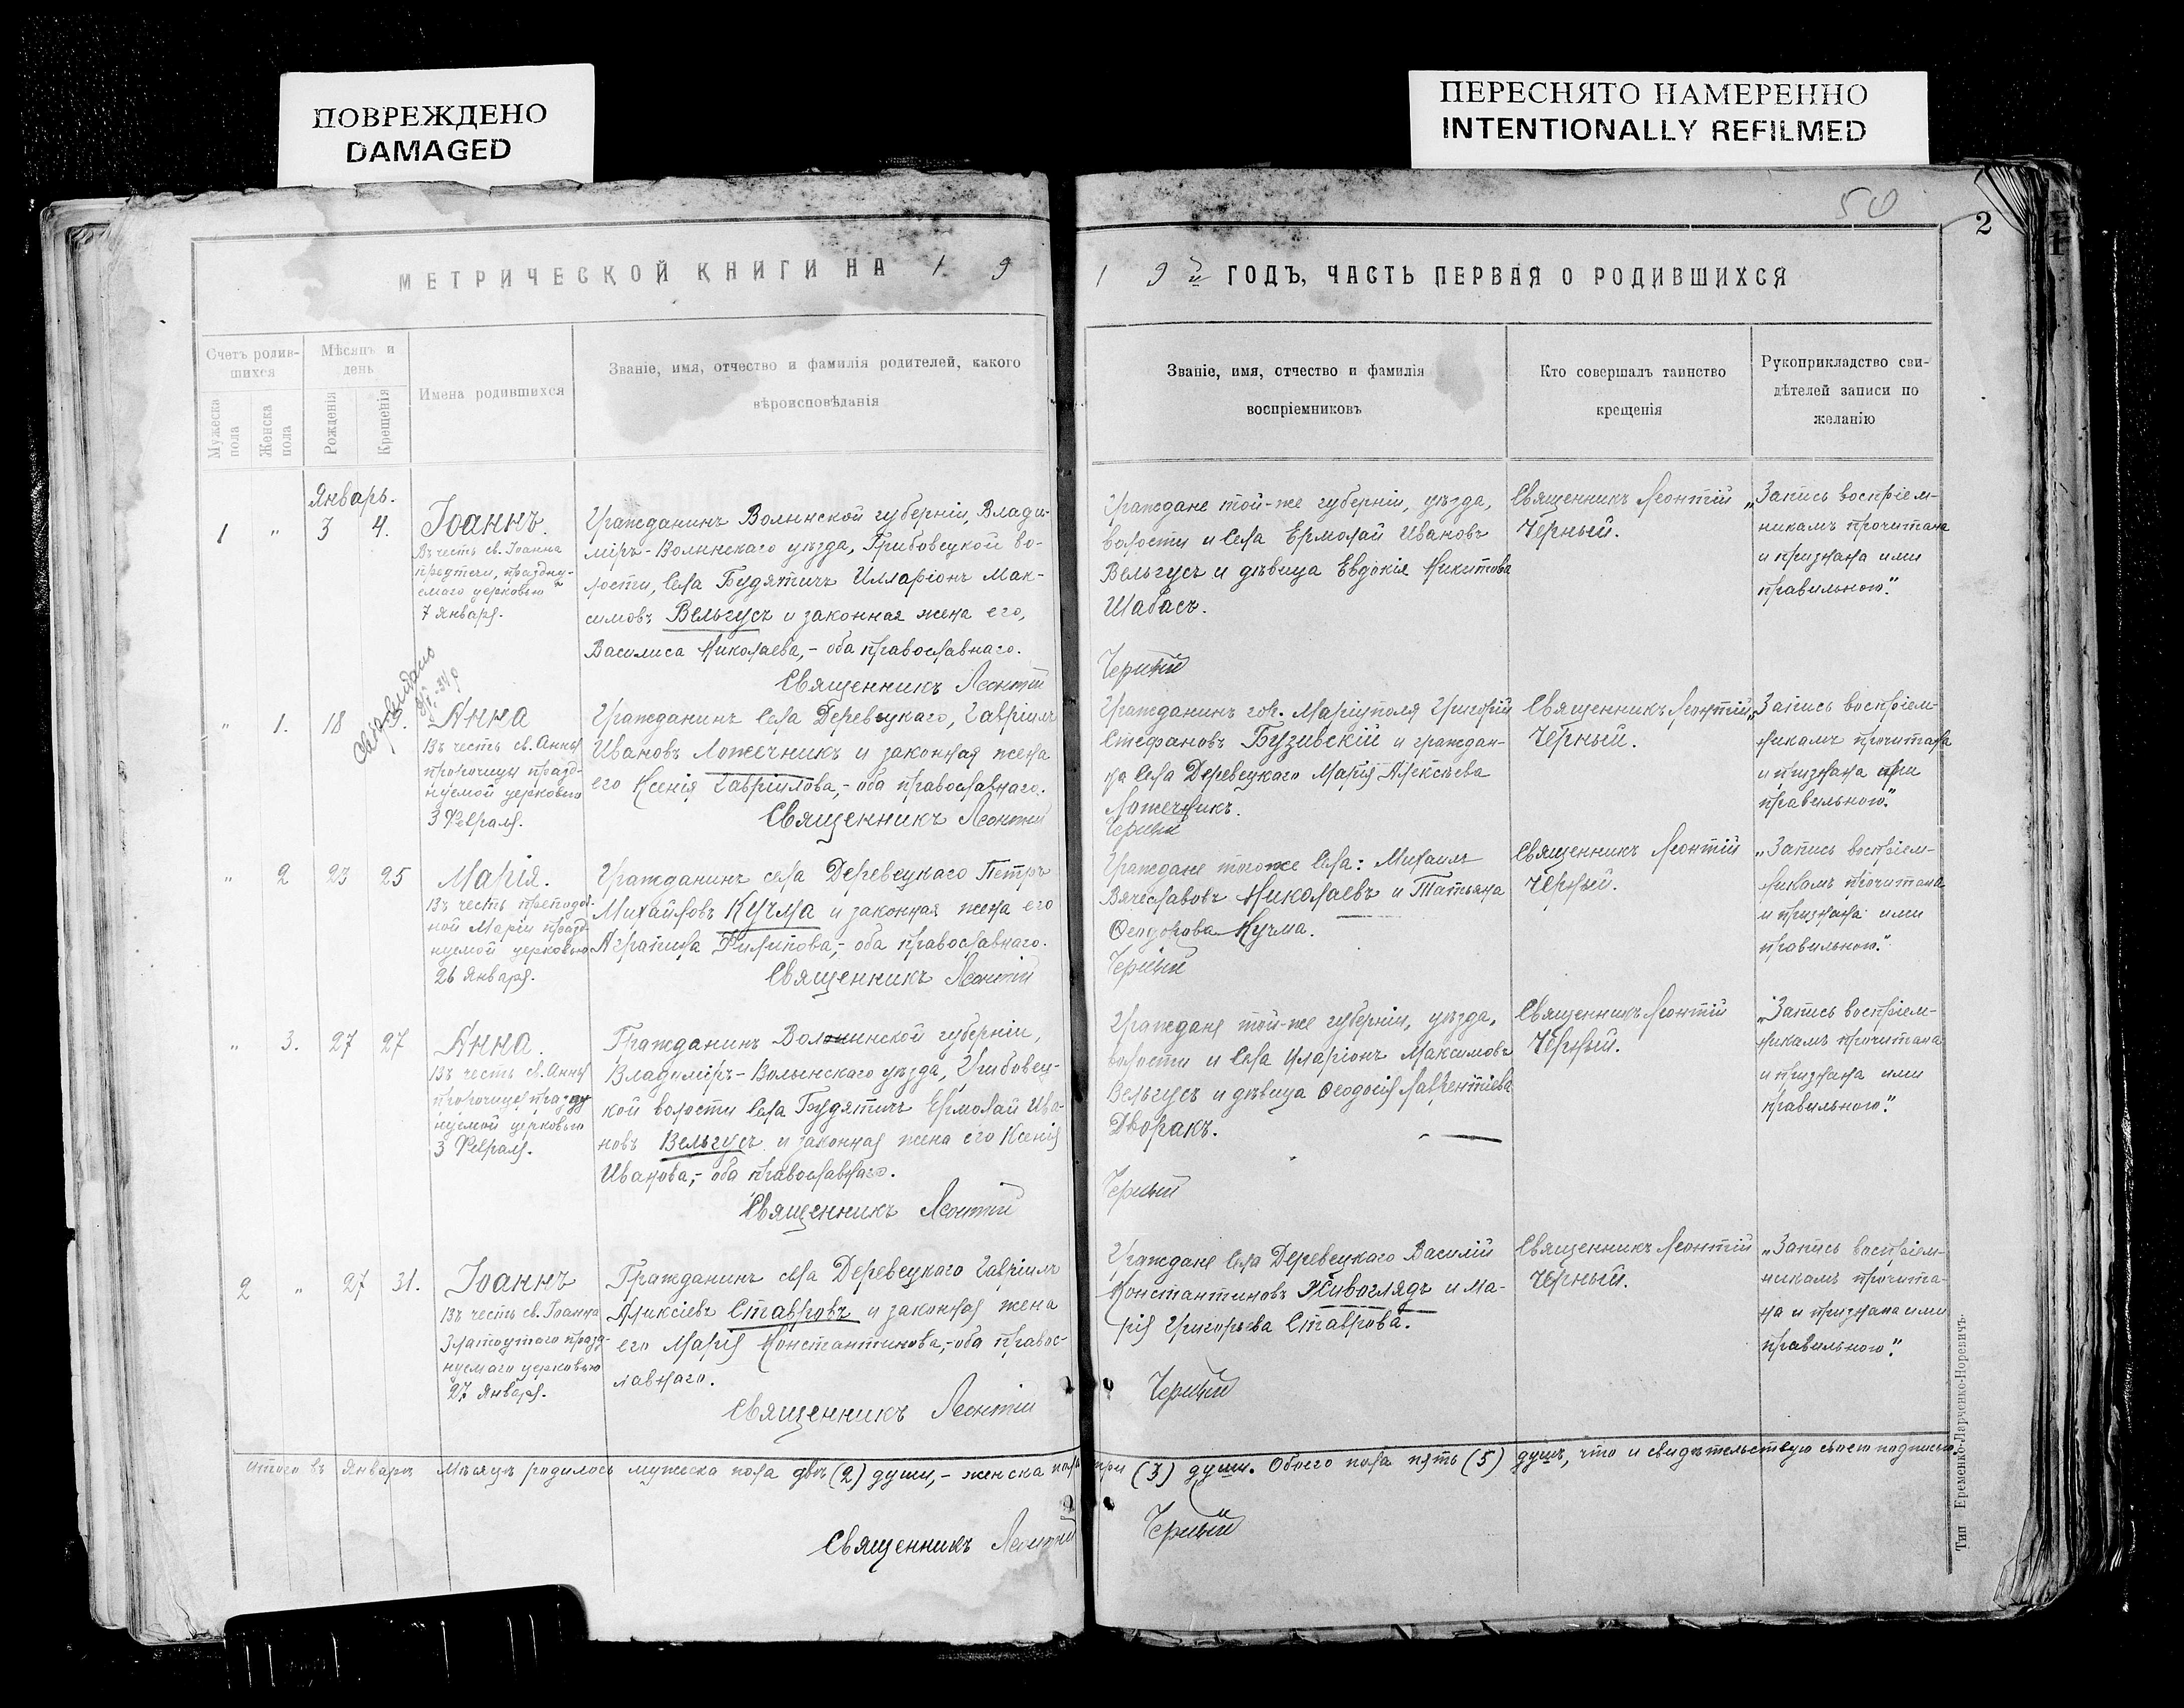 ПОВРЕЖДЕНО
DAMAGED
ПЕРЕСНЯТО НАМЕРЕННО
INTENTIONALLY REFILMED
50
2
МЕТРИЧЕСКОЙ КНИГИ НА 1 9
Счетъ родив-
шихся
Мѣсяцъ и
день
Мужеска
пола
Женска
пола
Рожденія
Крещенія
Имена родившихся
Званіе, имя, отчество и фамилія родителей, какого
вѣроисповѣданія
Январь.
1 " 3 4.
Іоаннъ.
Въ честь св. Іоанна
предтечи, праздну-
емаго церковью
7 Января.
Гражданинъ Волынской губерніи, Влади-
міръ-Волынскаго уѣзда, Грибовецкой во-
лости, села Будятичъ Илларіонъ Мак-
симовъ Вельгусъ и законная жена его,
Василиса Николаева,- оба православнаго.
Священникъ Леонтій
" 1. 18
Анна
Въ честь св. Анны
пророчицы празд-
нуемой церковью
3 Февраля.
Гражданинъ села Деревецкаго, Гавріилъ
Ивановъ Ложечникъ и законная жена
его Ксенія Гавріилова,- оба православнаго.
Священникъ Леонтій
" 2 23 25
Марія.
Въ честь преподоб-
ной Маріи празд-
нуемой церковью
26 Января.
Гражданинъ села Деревецкаго Петръ
Михайловъ Кучма и законная жена его
Агрипина Филипова,- оба православнаго.
Священникъ Леонтій
" 3. 27 27
Анна.
Въ честь св. Анны
пророчицы праздну
нуемой церковью
3 Февраля.
Гражданинъ Волынской губерніи,
Владиміръ-Волынскаго уѣзда, Грибовец-
кой волости села Будятичъ Ермолай Ива-
новъ Вельгусъ и законная жена его Ксенія
Иванова,- оба православнаго.
Священникъ Леонтій
2 " 27 31.
Іоаннъ
Въ честь св. Іоанна
Златоустаго празд-
нуемаго церковью
27 Января.
Гражданинъ села Деревецкаго Гавріилъ
Алексіевъ Ставровъ и законная жена
его Марія Константинова,- оба правос-
лавнаго.
Священникъ Леонтій
Итого въ Январѣ Мѣсяцѣ родилось мужеска пола двѣ (2) души,- женска пола
Священникъ Леонтій
1 9 й ГОДЪ, ЧАСТЬ ПЕРВАЯ О РОДИВШИХСЯ
Званіе, имя, отчество и фамилія
воспріемниковъ
Кто совершалъ таинство
крещенія
Рукоприкладство сви-
дѣтелей записи по
желанію
Граждане той-же губерніи, уѣзда,
волости и села Ермолай Ивановъ
Вельгусъ и дѣвица Евдокія Никитова
Шабасъ.
Черный
Священникъ Леонтій
Черный.
"Запись воспріем-
никамъ прочитана
и признана ими
правильною."
Гражданинъ гор. Маріуполя Григорій
Стефановъ Бузивскій и граждан-
ка села Деревецкаго Марія Алексѣева
Ложечникъ.
Черный
Священникъ Леонтій
Черный.
"Запись воспріем-
никамъ прочитана
и признана ими
правильною."
Граждане тогоже села: Михаилъ
Вячеславовъ Николаевъ и Татьяна
Ѳеодорова Кучма.
Черный
Священникъ Леонтій
Черный.
"Запись воспріем-
никамъ прочитана
и признана ими
правильною."
Граждане той-же губерніи, уѣзда,
волости и села Иларіонъ Максимовъ
Вельгусъ и дѣвица Ѳеодосія Лаврентіева
Дворакъ.
Черный
Священникъ Леонтій
Черный.
"Запись воспріем-
никамъ прочитана
и признана ими
правильною."
Граждане села Деревецкаго Василій
Константиновъ Живоглядъ и Ма-
рія Григорьева Ставрова.
Черный
Священникъ Леонтій
Черный.
"Запись воспріем-
никамъ прочита-
на и признана ими
правильною."
три (3) души. Обоего пола пять (5) душъ, что и свидѣтельствую своею подписью.
Черный
Тип Еременко-Ларченко-Норевичъ